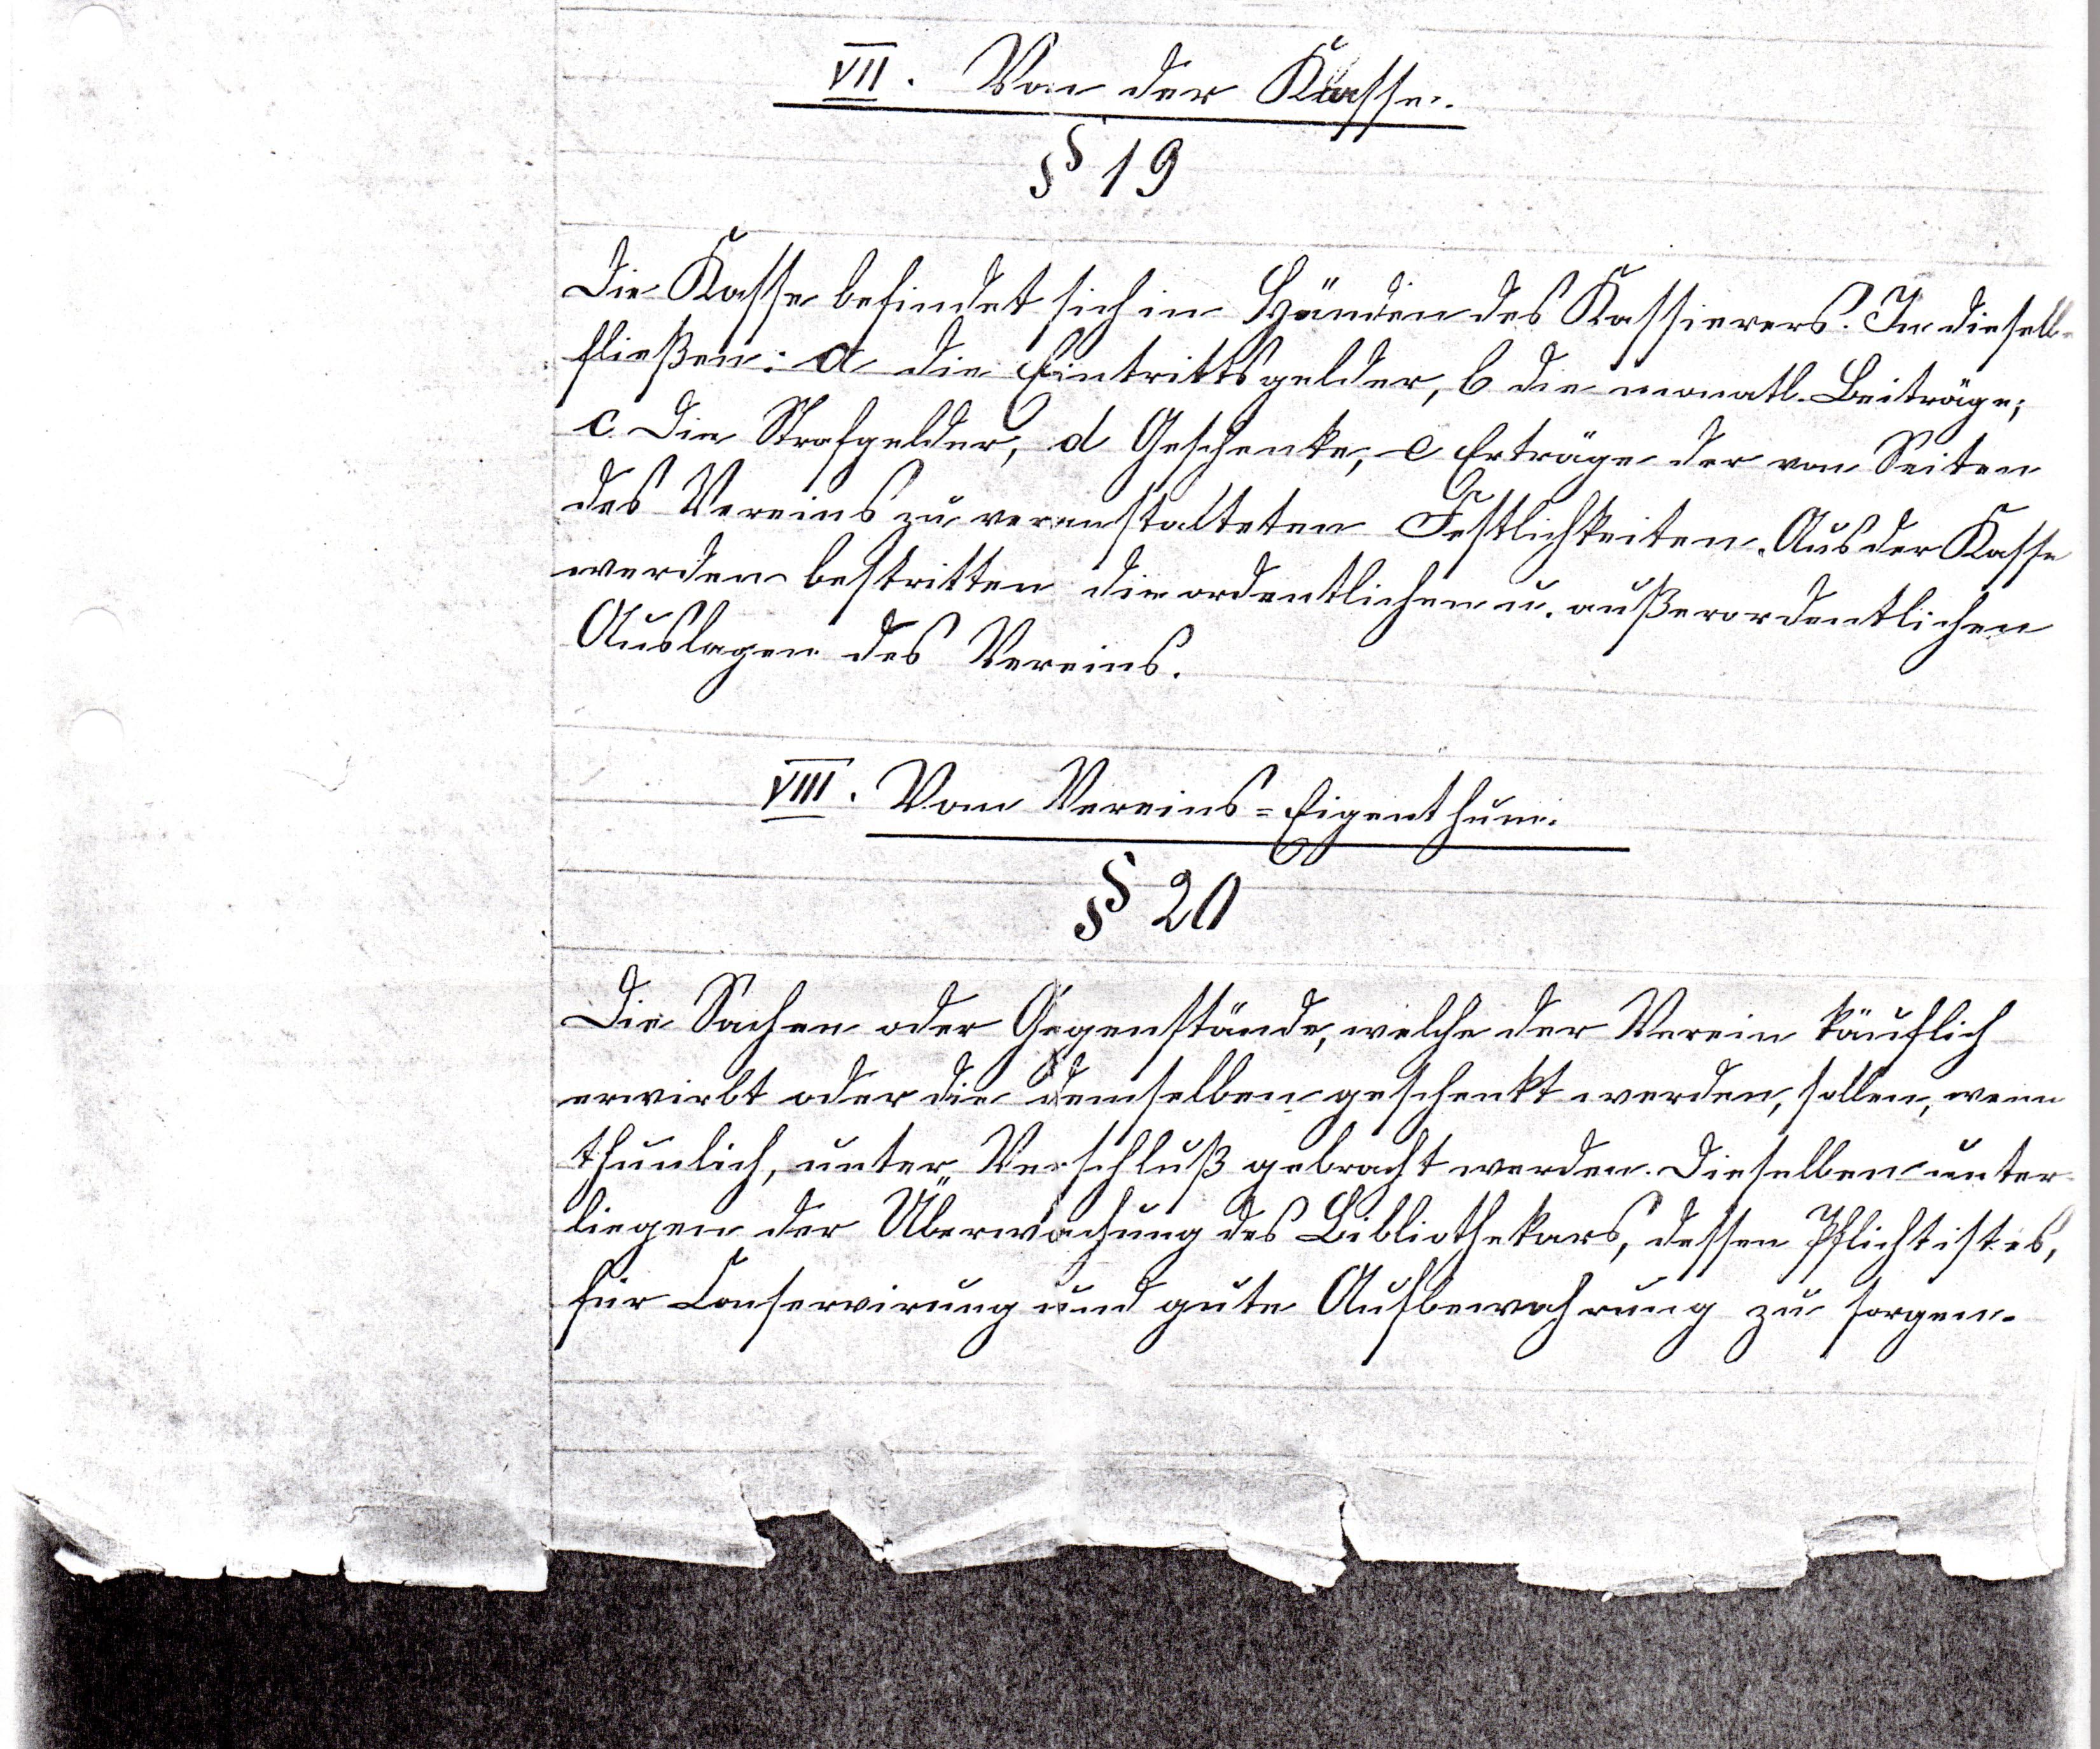 VII. Von der Kasse.
§ 19
Die Kasse befindet sich in Händen des Kassierers. In dieselb-
fließen: a die Eintrittsgelder, b die monatl. Beiträge;
c. Die Strafgelder, d Geschenke, e Erträge der von Seiten
des Vereins zu veranstalteten Festlichkeiten. Aus der Kasse
werden bestritten die ordentlichen u. außerordentlichen
Auslagen des Vereins.
VIII. Vom Vereins=Eigenthum.
§ 20
Die Sachen oder Gegenstände, welche der Verein käuflich
erwirbt oder die demselben geschenkt werden, sollen, wenn
thunlich, unter Verschluß gebracht werden. Dieselben unter-
liegen der Überwachung des Bibliothekars, dessen Pflicht ist es,
für Conservirung und gute Aufbewahrung zu sorgen.